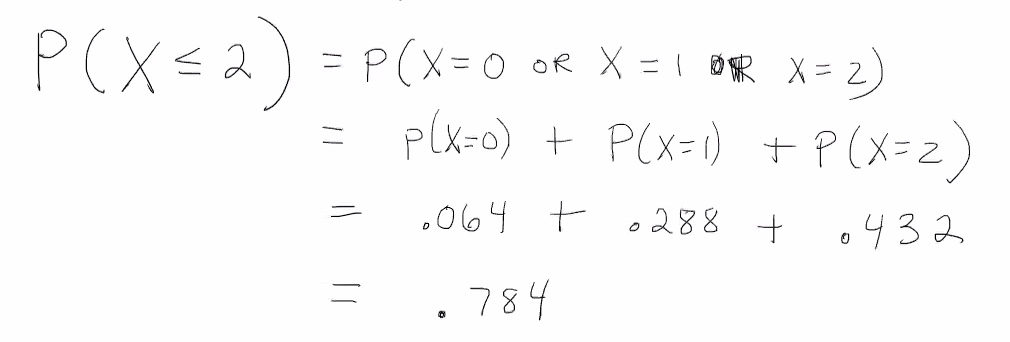 P(X ≤ 2) = P(X=0 OR X=1 OR X=2)
= P(X=0) + P(X=1) + P(X=2)
= .064 + .288 + .432
= .784